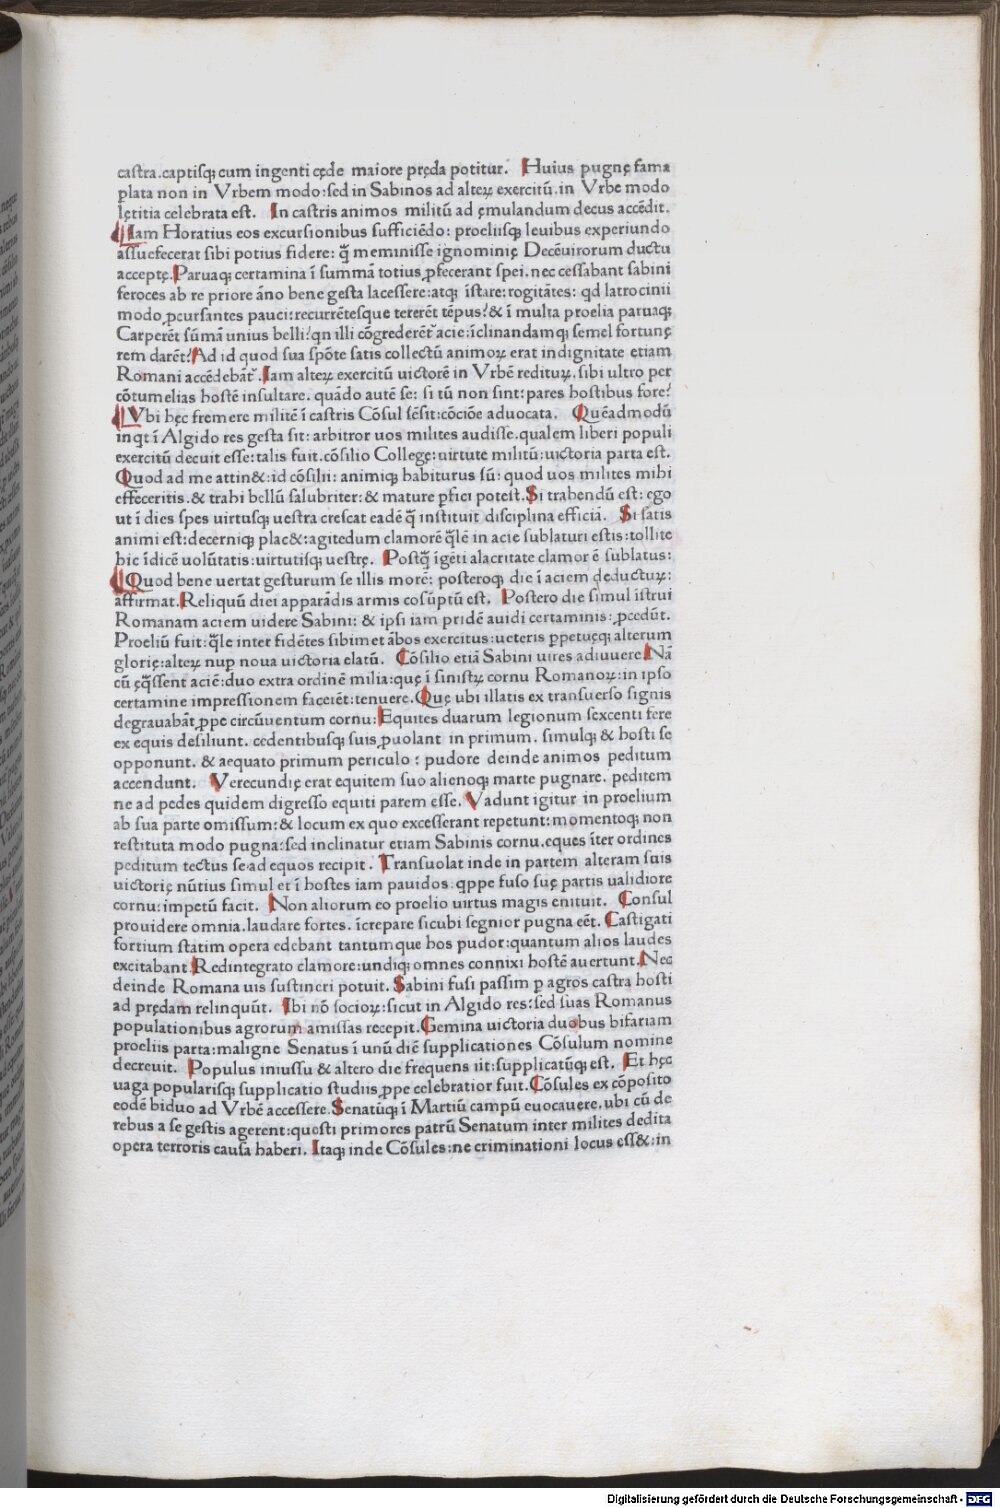 castra.captisq; cum ingenti cęde maiore pręda potitur. Huius pugnę fama
ꝓlata non in Vrbem modo:sed in Sabinos ad alteꝝ exercitū.in Vrbe modo
lętitia celebrata est. In castris animos militū ad ęmulandum decus accēdit.
Iam Horatius eos excursionibus sufficiēdo: proeliisq; leuibus experiundo
assuefecerat sibi potius fidere: q̄ meminisse ignominię Decēuirorum ductu
acceptę.Paruaq; certamina ī summā totius ꝓfecerant spei.nec cessabant sabini
feroces ab re priore āno bene gesta lacessere:atq; īstare:rogitātes: qd latrocinii
modo ꝓcursantes pauci:recurrētesque tererēt tēpus?& ī multa proelia paruaq;
Carperēt sūmā unius belli?qn illi cōgrederēt acie:īclinandamq; semel fortunę
rem darēt?Ad id quod sua spōte satis collectū animoꝝ erat indignitate etiam
Romani accēdebāt. Iam alteꝝ exercitū uictorē in Vrbē redituꝝ.sibi ultro per
cōtumelias hostē insultare. quādo autē se: si tū non sint:pares hostibus fore?
Vbi hęc fremere militē ī castris Cōsul sēsit:cōcióe aduocata. Quēadmodū
inqt ī Algido res gesta sit: arbitror uos milites audisse.qualem liberi populi
exercitū decuit esse:talis fuit.cōsilio College:uirtute militū:uictoria parta est.
Quod ad me attin&:id cōsilii: animiq; habiturus sū: quod uos milites mihi
effeceritis.& trahi bellū salubriter:& mature ꝑfici potest.Si trahendū est: ego
ut ī dies spes uirtusq; uestra crescat eadē q̄ instituit disciplina efficiā. Si satis
animi est:decerniq; plac&:agitedum clamorē q̄lē in acie sublaturi estis:tollite
hic īdicē uolūtatis:uirtutisq; uestrę. Postq̄ īgēti alacritate clamor ē sublatus:
Quod bene uertat gesturum se illis morē: posteroq; die ī aciem deductuꝝ:
affirmat.Reliquū diei apparādis armis cōsūptū est. Postero die simul īstrui
Romanam aciem uidere Sabini: & ipsi iam pridē auidi certaminis:ꝓcedūt.
Proeliū fuit:q̄le inter fidētes sibimet ābos exercitus:ueteris ꝑpetuęq; alterum
glorię:alteꝝ nuꝑ noua uictoria elatū. Cōsilio etiā Sabini uires adiuuere.Nā
cū ęq̄ssent aciē:duo extra ordinē milia:quę ī sinistꝝ cornu Romanoꝝ:in ipso
certamine impressionem facerēt:tenuere.Quę ubi illatis ex transuerso signis
degrauabāt ꝓpe circūuentum cornu:Equites duarum legionum sexcenti fere
ex equis desiliunt. cedentibusq; suis ꝓuolant in primum. simulq; & hosti se
opponunt. & aequato primum periculo: pudore deinde animos peditum
accendunt. Verecundię erat equitem suo alienoq; marte pugnare. peditem
ne ad pedes quidem digresso equiti parem esse. Vadunt igitur in proelium
ab sua parte omissum:& locum ex quo excesserant repetunt:momentoq; non
restituta modo pugna:sed inclinatur etiam Sabinis cornu.eques īter ordines
peditum tectus se ad equos recipit. Transuolat inde in partem alteram suis
uictorię nūtius simul et ī hostes iam pauidos.qppe fuso suę partis ualidiore
cornu:impetū facit. Non aliorum eo proelio uirtus magis enituit. Consul
prouidere omnia.laudare fortes. īcrepare sicubi segnior pugna eēt. Castigati
fortium statim opera edebant tantumque hos pudor:quantum alios laudes
excitabant.Redintegrato clamore:undiq; omnes connixi hostē auertunt.Nec
deinde Romana uis sustineri potuit. Sabini fusi passim ꝑ agros castra hosti
ad prędam relinquūt. Ibi nō socioꝝ:sicut in Algido res:sed suas Romanus
populationibus agrorum amissas recepit.Gemina uictoria duobus bifariam
proeliis parta:maligne Senatus ī unū diē supplicationes Cōsulum nomine
decreuit. Populus iniussu & altero die frequens iit:supplicatūq; est. Et hęc
uaga popularisq; supplicatio studiis ꝓpe celebratior fuit.Cōsules ex cōposito
eodē biduo ad Vrbē accessere.Senatūq; ī Martiū campū euocauere.ubi cū de
rebus a se gestis agerent:questi primores patrū Senatum inter milites dedita
opera terroris causa haberi. Itaq; inde Cōsules:ne criminationi locus ess&:in
Digitalisierung gefördert durch die Deutsche Forschungsgemeinschaft - DFG